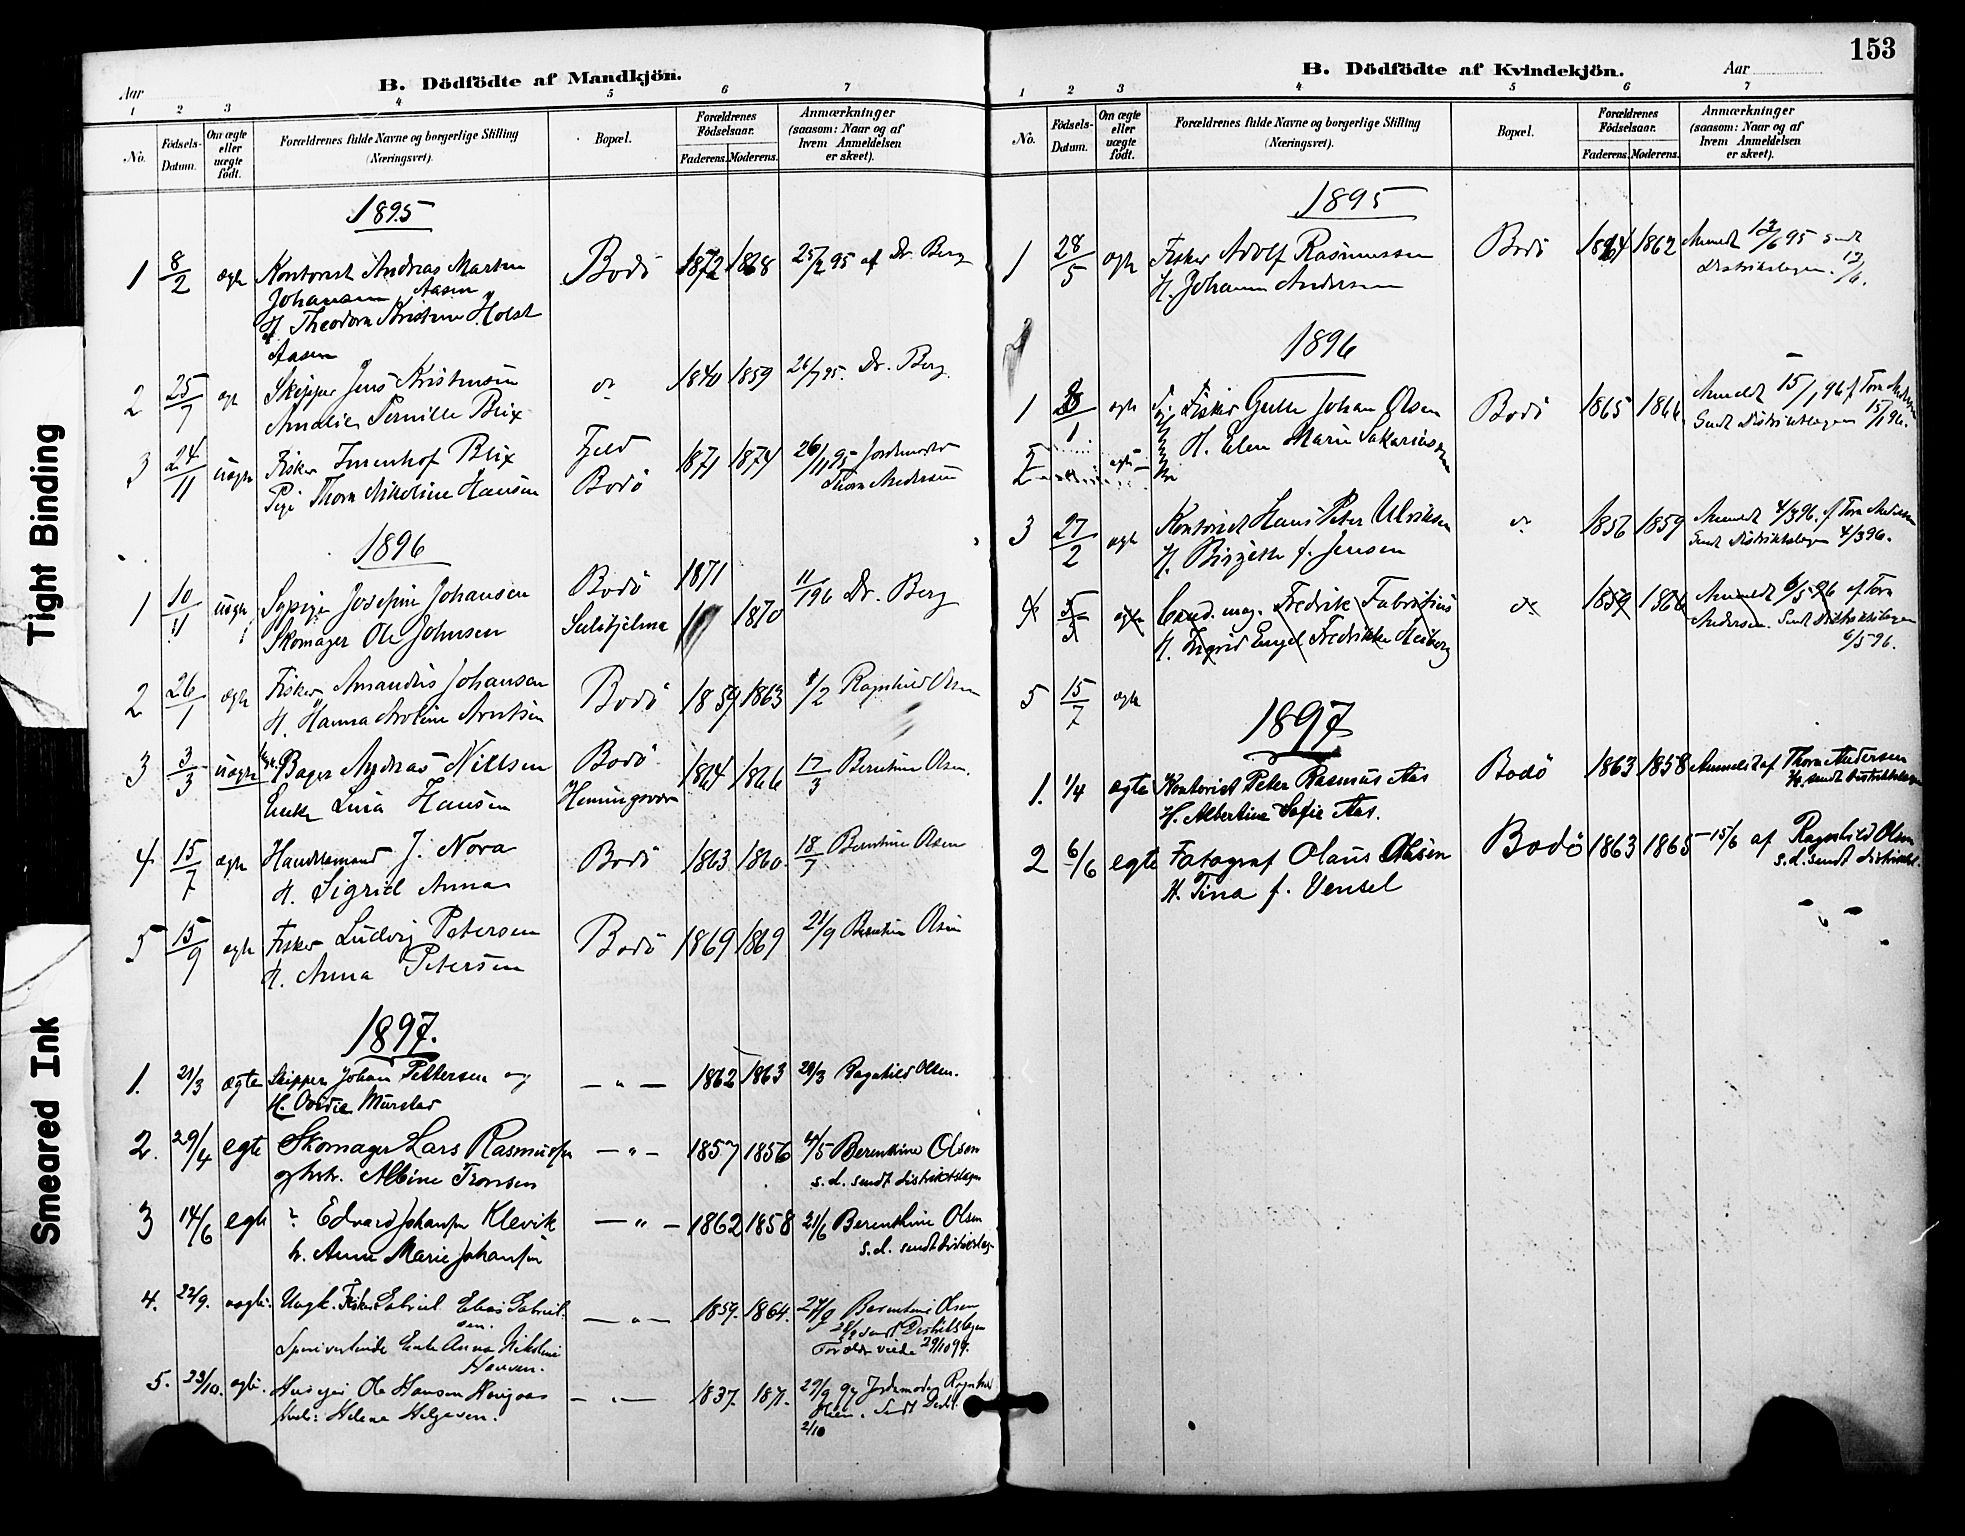 Tight Binding
Smeared Ink
B. Dödfödte af Mandkjön.
Aar
1 2 3 4 5 6 7
No.
Födsels-Datum.
Om ægte eller uægte födt.
Forældrenes fulde Navne og borgerlige Stilling (Næringsvei).
Bopæl.
Forældrenes Födselsaar.
Faderens. Moderens.
Anmærkninger (saasom: Naar og af hvem Anmeldelsen er skeet).
1895
1 8/2 ægte Kontorist Andreas Martin Bodö 1872 1868 25/2 95 af Dr. Berg
Johansen Aasen
H. Theodora Kristine Holst
Aasen
2 25/7 Skipper Jens Kristensen 1840 1859 26/7 95. Dr. Berg.
Amalie Pernille Blix
3 24/11 uægte Fisker Blix Fjeld 1871 1874 26/11 95 Jordemoder
Pige Thora Nikoline Hansen Bodö Thora Andersen
1896
1 10/11 uægte Sypige Josefine Johansen Bodö 1871 1870 11/1 96 Dr. Berg
Skomager Ole Johnsen Sulitjelma
2 26/1 ægte Fisker Amandus Johansen Bodö 1859 1863 1/2 Ragnhild Olsen
H. Hanna
3 3/3 uægte Bager Andreas Nillsen Bodö 1866 17/3 Berntine Olsen.
Enke Lina Hansen Henningsvær
4 15/7 ægte Handelsmand J. Nora Bodö 1863 1860. 18/7 Berntine Olsen
H. Sigrid Anna
5 15/9 ægte Fisker Ludvig Petersen Bodö 1869 1869 21/9 Berntine Olsen
H. Anna Petersen
1897.
1. 21/3 ægte Skipper Johan Pettersen og — " — 1862 1863 Ragnhild Olsen.
H.
2. 29/4 egte Skomager Lars Rasmussen — " — 1857 1856 Berentine Olsen
Albine Tronsen s. d. sendt distriktslægen
3 14/6 egte ? Edvard Johansen Klevik — " — 1862 1858 21/6 Berenthine Olsen
h. Anne Marie Johansen s. d. sendt
4. 22/9. uægte. Ungk. Fisker Gabriel Elias Gabriel- — " — 1859. 1864. Berentine Olsen
sen. sendt Distriktslægen
Enke Anna Nikoline 29/10 97.
Hansen.
5. 23/10. ægte. Ole Hansen — " — 1837. 1871. 97 Jordemoder
Helene Helgesen. Sendt
2/10
153
B. Dödfödte af Kvindekjön.
Aar
1 2 3 4 5 6 7
No.
Födsels-Datum.
Om ægte eller uægte födt.
Forældrenes fulde Navne og borgerlige Stilling (Næringsvei).
Bopæl.
Forældrenes Födselsaar.
Faderens. Moderens.
Anmærkninger (saasom: Naar og af hvem Anmeldelsen er skeet).
1895
1 28/5 ægte Fisker Adolf Rasmussen Bodö 1864 1862 Anmeldt 12/6 95 Sendt
H. Johanna Andersen Distriktslægen. 12/6.
2
1896
1 ægte Fisker Johan Olsen Bodö 1865 1866 Anmeldt 15/1 96 af Tora Andersen
H. Elen Marie Sakariassen Sendt Distriktslægen 15/1 96.
2
3 27/2 ægte Kontorist Hans Peter Ulriksen 1856 1859 Anmeldt 4/3 96. af Tora Andersen
H. Birgitte f. Jensen Sendt Distriktslægen 4/3 96.
4 ægte Cand. mag. Fredrik Fabritius 1859 1866 Anmeldt 6/5 96 af Tora
H. Ingrid Engel Fredrikke Andersen. Sendt Distriktslægen
6/5 96.
5 15/7 ægte
1897
1. 1/4 ægte Kontorist Peter Rasmus Aas Bodö 1863 1858 Anmeldt af Thora Andersen
H. Albertine Sofie Aas. sendt Distriktslægen
2 6/6 egte Fotograf Olaus Olsen Bodö 1863 1865 — 15/6 af Ragnhild Olsen
H. Tina f. Vensel s. d. sendt distriktsl.